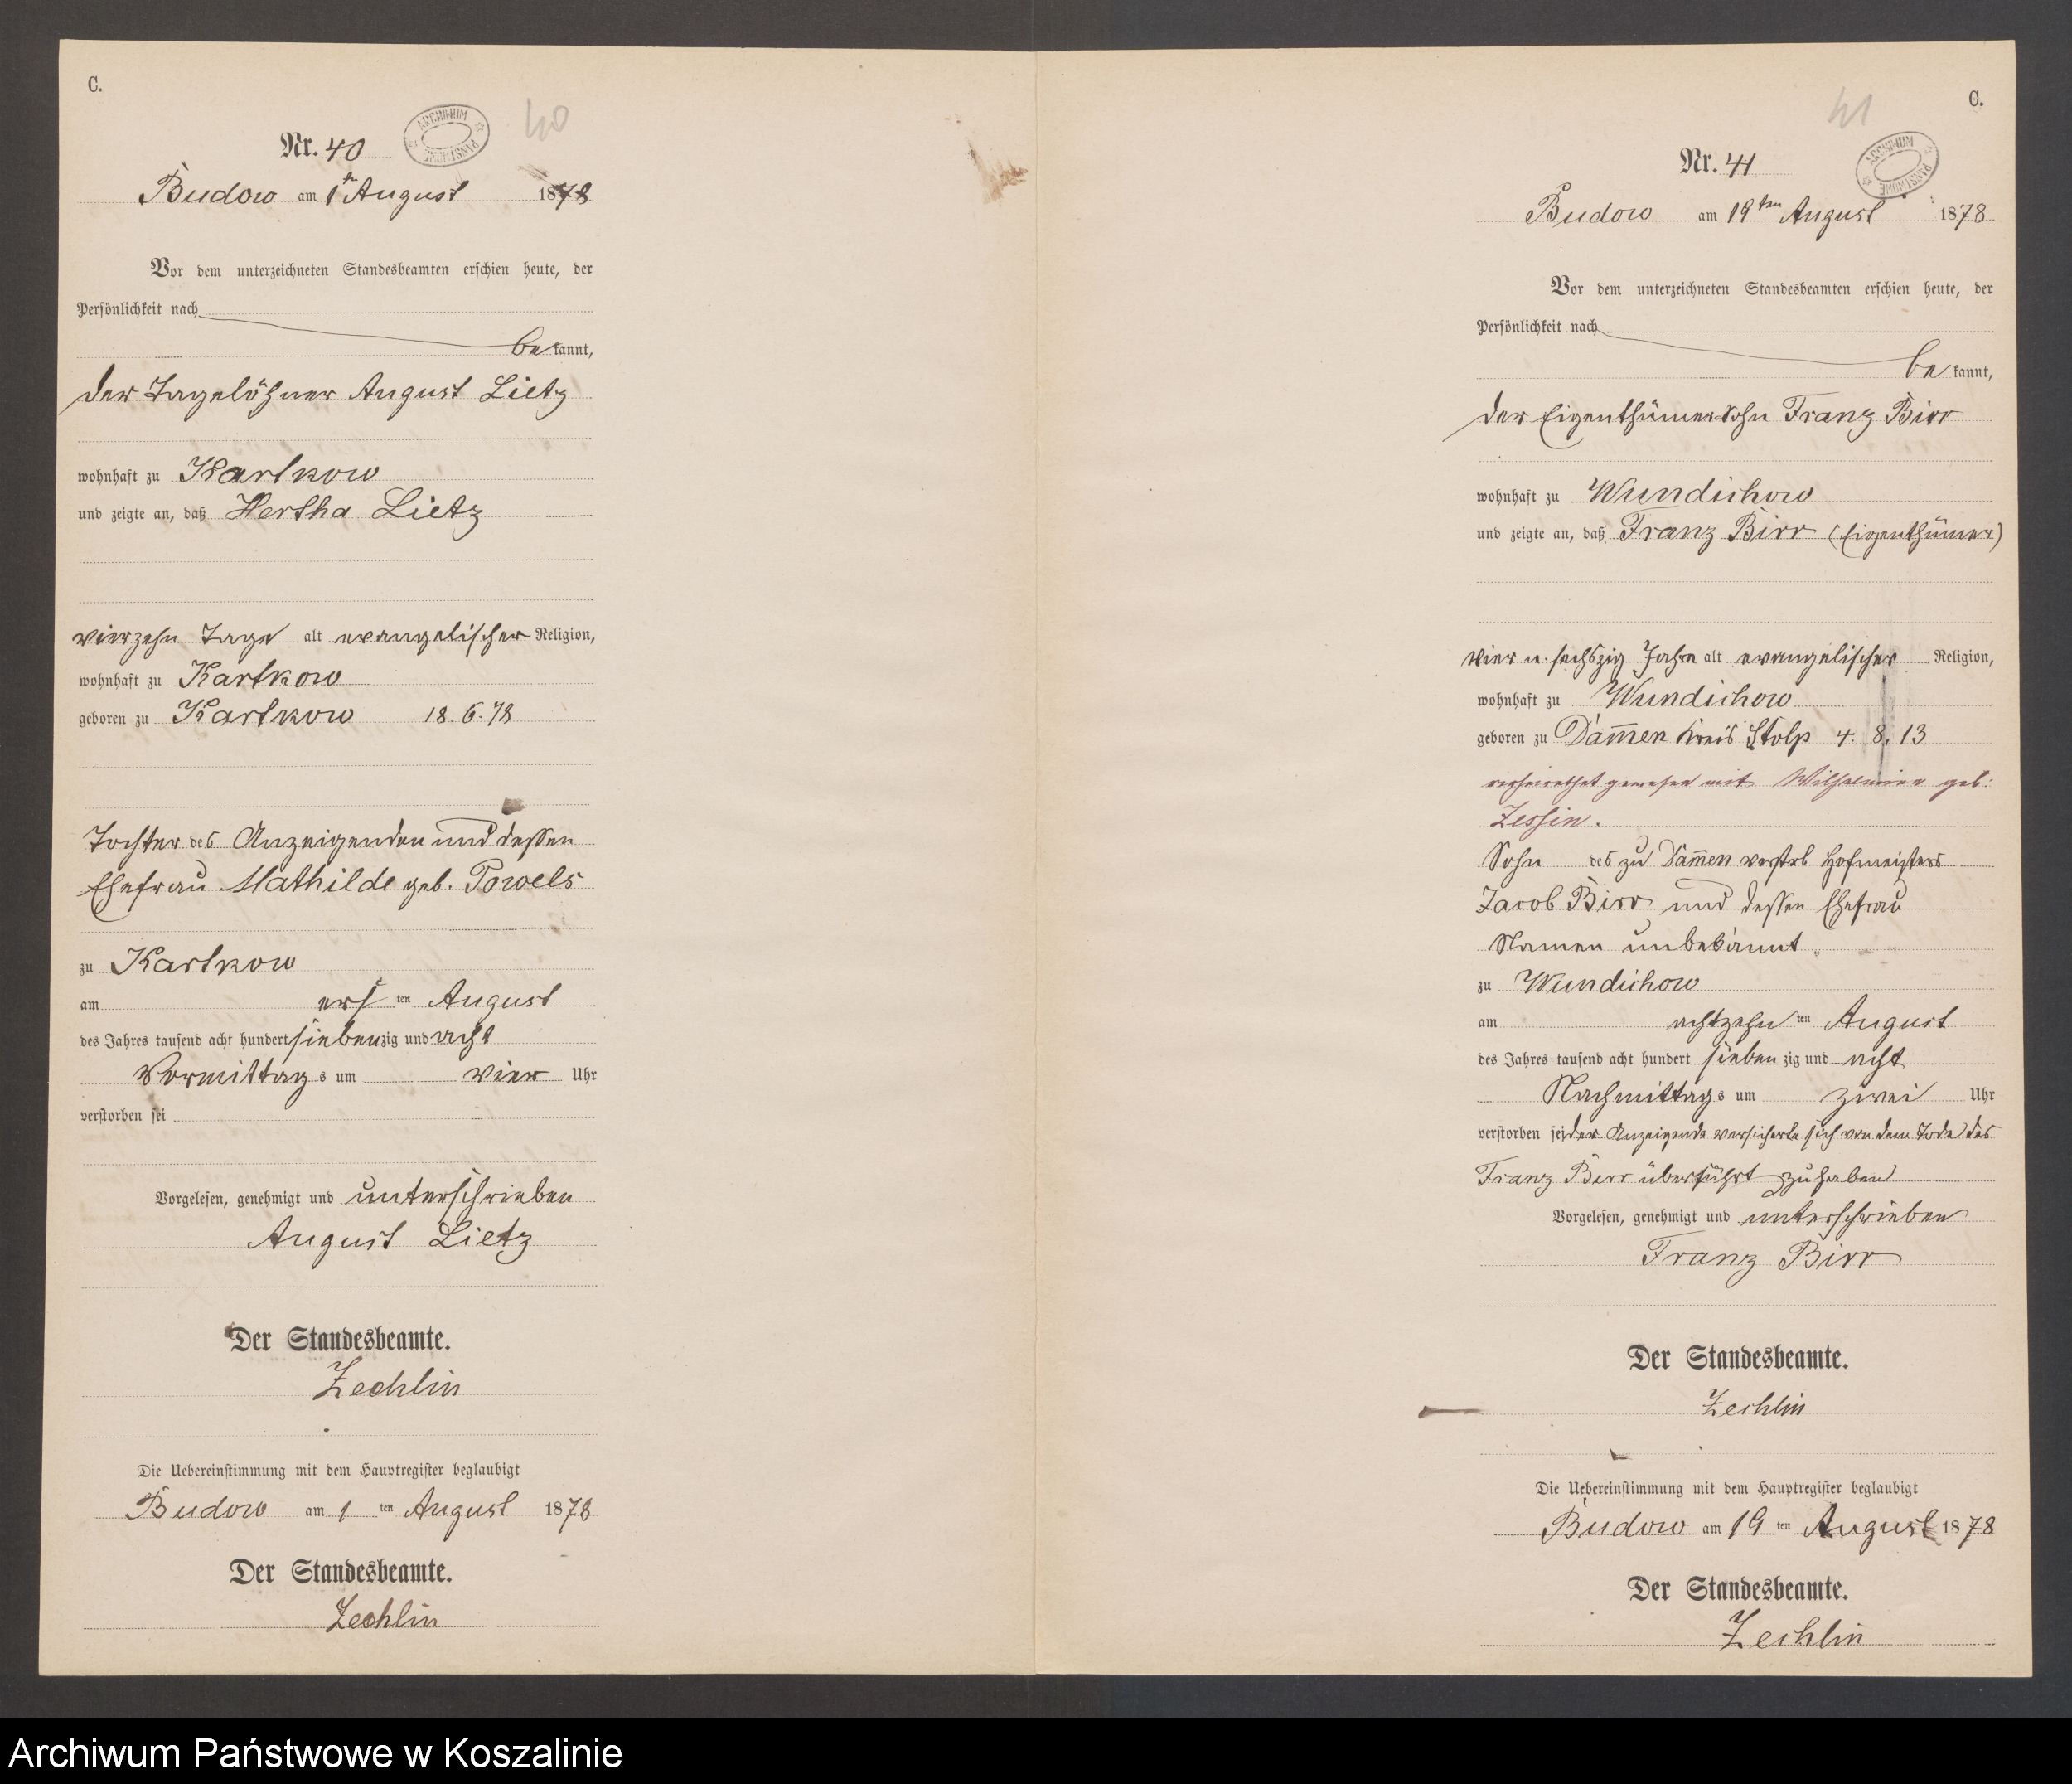 C.
Nr. 40
ARCHIWUM PAŃSTWOWE
40
Budow am 1ten August 1878
Vor dem unterzeichneten Standesbeamten erschien heute, der
Persönlichkeit nach
bekannt,
der Tagelöhner August Lietz
wohnhaft zu Kartkow
und zeigte an, daß Hertha Lietz
vierzehn Tage alt evangelischer Religion,
wohnhaft zu Kartkow
geboren zu Kartkow 18. 6. 78
Tochter des Anzeigenden und dessen
Ehefrau Mathilde geb. Powels
zu Kartkow
am ersten August
des Jahres tausend acht hundert siebenzig und acht
Vormittags um vier Uhr
verstorben sei
Vorgelesen, genehmigt und unterschrieben
August Lietz
Der Standesbeamte.
Zechlin
Die Uebereinstimmung mit dem Hauptregister beglaubigt
Budow am 1 ten August 1878
Der Standesbeamte.
Zechlin
C.
41
Nr. 41
ARCHIWUM PAŃSTWOWE
Budow am 19ten August 1878
Vor dem unterzeichneten Standesbeamten erschien heute, der
Persönlichkeit nach
bekannt,
der Eigenthümersohn Franz Birr
wohnhaft zu Wundichow
und zeigte an, daß Franz Birr (Eigenthümer)
vier u. sechszig Jahre alt evangelischer Religion,
wohnhaft zu Wundichow
geboren zu Dam̅en Kreis Stolp 4. 8. 13
verheirathet gewesen mit Wilhelmine geb:
Zessin.
Sohn des zu Dam̅en verstrb Hofmeisters
Jacob Birr und dessen Ehefrau
Namen unbekannt.
zu Wundichow
am achtzehnten August
des Jahres tausend acht hundert siebenzig und acht
Nachmittags um zwei Uhr
verstorben sei, der Anzeigende versicherte sich von dem Tode des
Franz Birr überführt zu haben
Vorgelesen, genehmigt und unterschrieben
Franz Birr
Der Standesbeamte.
Zechlin
Die Uebereinstimmung mit dem Hauptregister beglaubigt
Budow am 19 ten August 1878
Der Standesbeamte.
Zechlin
Archiwum Państwowe w Koszalinie